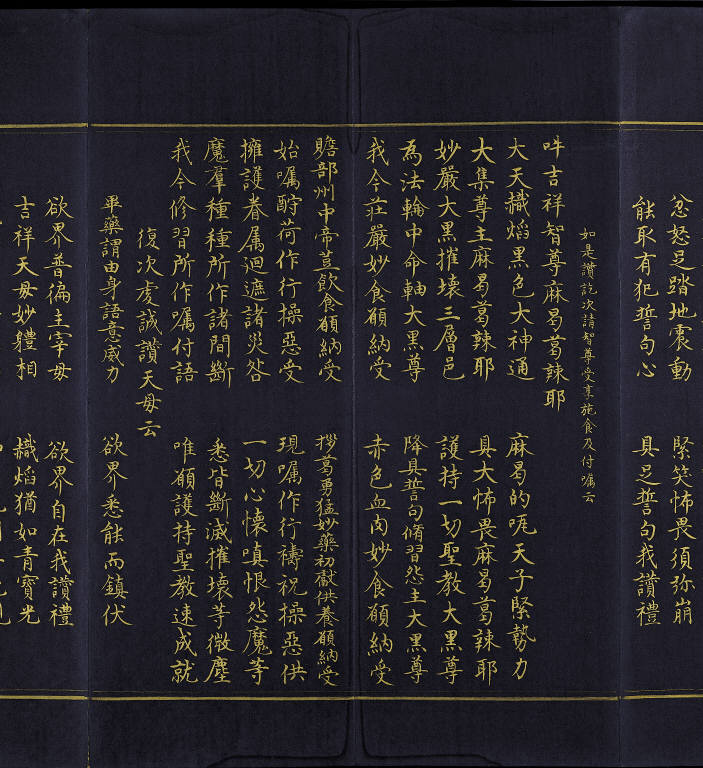 忿怒足踏地震動 緊笑怖畏須弥崩
能取有犯誓句心 具足誓句我讚禮
如是讚說次請智尊受享施食及付囑云
吽吉祥智尊麻曷葛辣耶
大天熾焰黑色大神通 麻曷的呢天子緊勢力
大集尊主麻曷葛辣耶 具大怖畏麻曷葛辣耶
妙嚴大黑摧壞三層邑 護持一切聖教大黑尊
為法輪中命軸大黑尊 降具誓句脩習怨主大黑尊
我今莊嚴妙食願納受 赤色血肉妙食願納受
贍部州中帝荳飲食願納受 拶葛勇猛妙藥初獻供養願納受
始囑酧荷作行操惡受 現囑作行禱祝操惡供
擁護眷属迴遮諸災咎 一切心懷嗔恨怨魔等
魔羣種種所作諸間斷 悉皆斷滅摧壞等微塵
我今修習所作囑付語 唯願護持聖教速成就
復次虔誠讚天母云
畢藥謂由身語意威力 欲界悉能而鎮伏
欲界普徧主宰母 欲界自在我讚禮
吉祥天母妙軆相 熾焰猶如青寶光